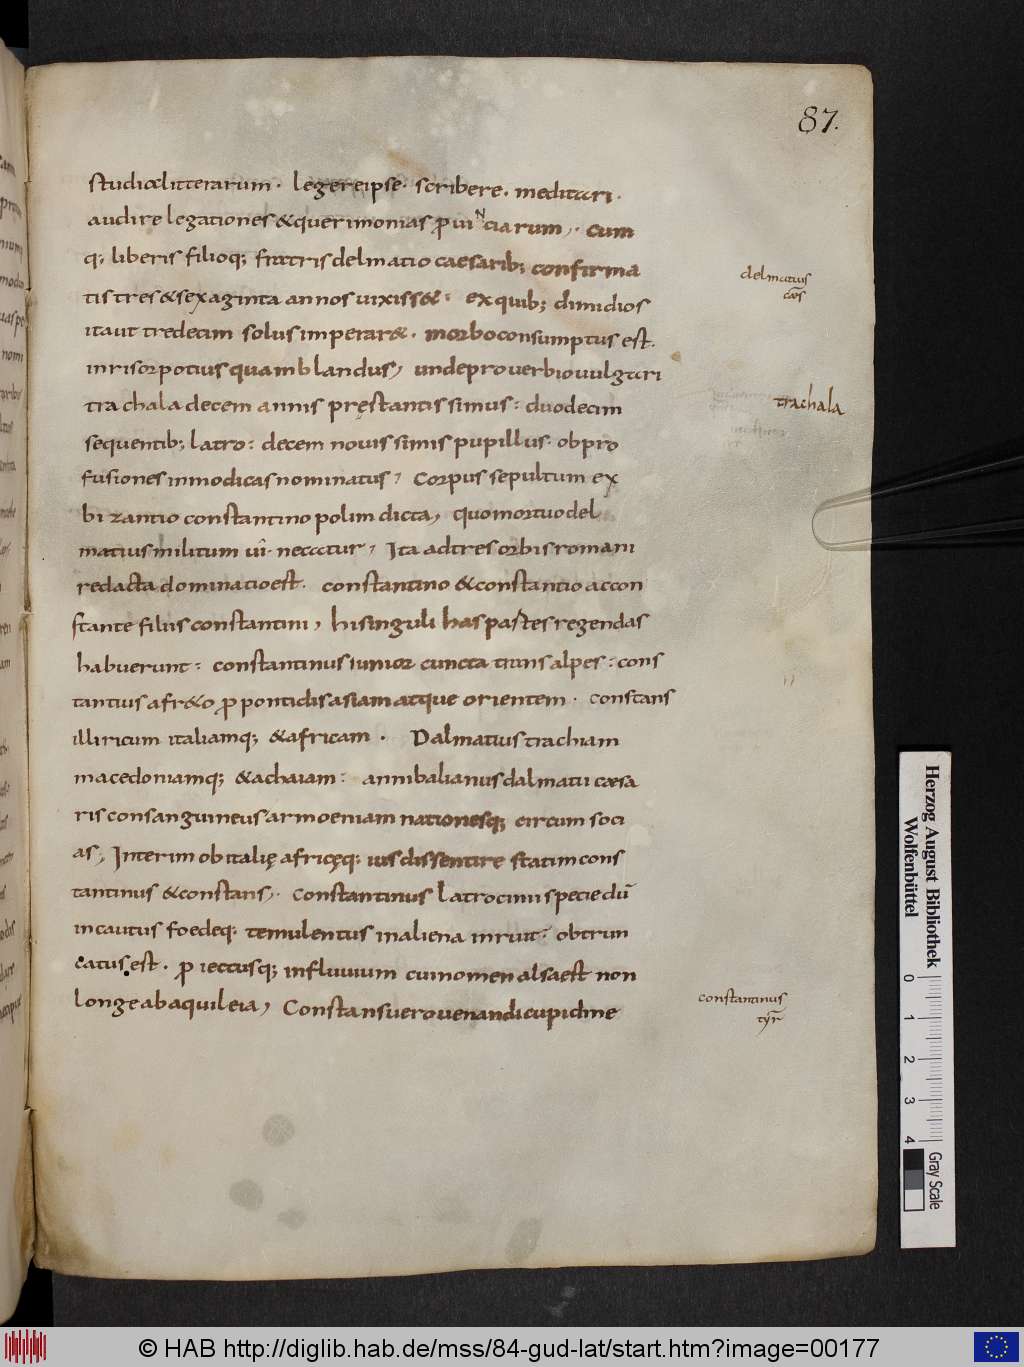 87.
studia litterarum · legere ipse · scribere · meditari ·
audire legationes & querimonias ꝓuinciarum, · cum
q; liberis filioq; fratris delmatio caesarib; confirma
tis tres & sexaginta annos uixiss& · ex quib; dimidios
ita ut tredecim solus imperar& · morbo consumptus est.
inrisor potius quam blandus, unde prouerbio uulgari
trachala decem annis pręstantissimus : duodecim
sequentib; latro : decem nouissimis pupillus · ob pro
fusiones inmodicas nominatus, Corpus sepultum ex
bizantio constantinopolim dicta, quo mortuo del
matius militum ui · necatur, Ita ad tres orbis romani
redacta dominatio est. constantino & constantio accon
stante filiis constantini, hi singuli has partes regendas
habuerunt : constantinus iunior cuncta trans alpes : cons
tantius afr&o ꝓpontidis asiam atque orientem · constans
illiricum italiamq; & africam · Dalmatius trachiam
macedoniamq; & achaiam : annibalianus dalmatii cæsa
ris consanguineus armoeniam nationesq; circum soci
as, Interim ob italię africęq; ius dissentire statim cons
tantinus & constans, · Constantinus latrocinii specie dū
incautus foedeq; temulentus in aliena inruit : obtrun
catus est · ꝓiectusq; in fluuium cui nomen alsa est non
longe ab aquileia, Constans uero uenandi cupidine
delmatius
cæs
trachala
constantinus
tyr̄
Herzog August Bibliothek
Wolfenbüttel
0 1 2 3 4
Gray Scale
© HAB http://diglib.hab.de/mss/84-gud-lat/start.htm?image=00177